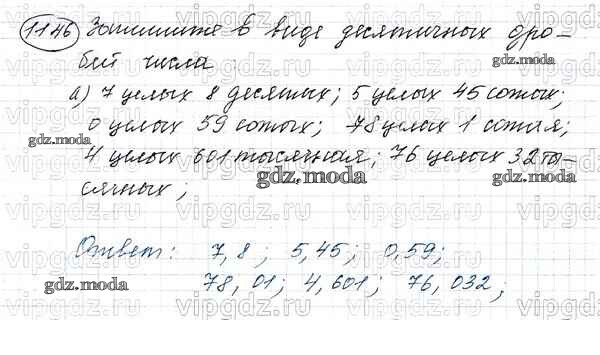 1146 Запишите в виде десятичных дро-
бей числа
а) 7 целых 8 десятых; 5 целых 45 сотых;
0 целых 59 сотых; 78 целых 1 сотая;
4 целых 601 тысячная; 76 целых 32 ты-
сячных;
Ответ: 7,8; 5,45; 0,59;
78,01; 4,601; 76,032;
vipgdz.ru
gdz.moda